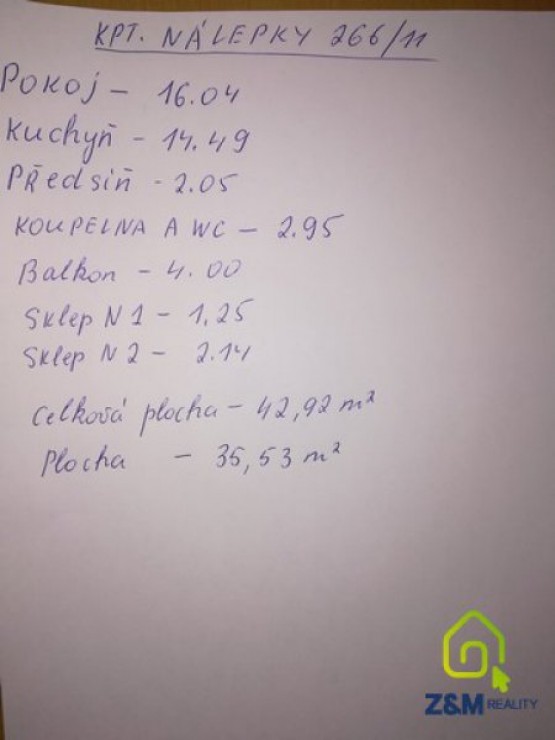 KPT. NÁLEPKY 266/11
Pokoj - 16.04
Kuchyň - 14.49
Předsiň - 2.05
KOUPELNA A WC - 2.95
Balkon - 4.00
Sklep N 1 - 1.25
Sklep N 2 - 2.14
Celková plocha - 42,92 m²
Plocha - 35,53 m²
Z&M REALITY